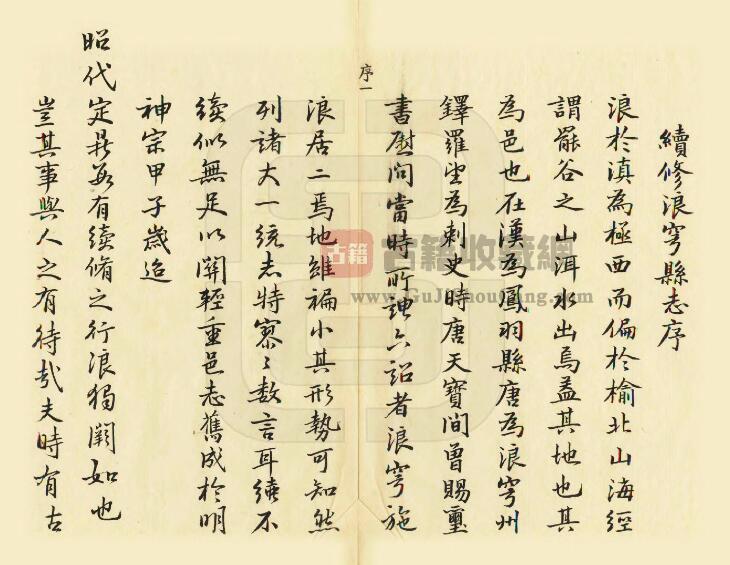 續修浪穹縣志序
浪於滇為極西而偏於榆北山海經
謂罷谷之山洱水出焉蓋其地也其
為邑也在漢為鳳羽縣唐為浪穹州
鐸羅望為刺史時唐天寶間曾賜璽
書慰問當時所謂六詔者浪穹施
序一
浪居二焉地雖褊小其形勢可知然
列諸大一統志特寥〻數言耳續不
續似無足以關輕重邑志舊成於明
神宗甲子歲迨
昭代定鼎每有續脩之行浪獨闕如也
豈其事與人之有待哉夫時有古
古籍
古籍收藏網
www.GuJiShouCang.com